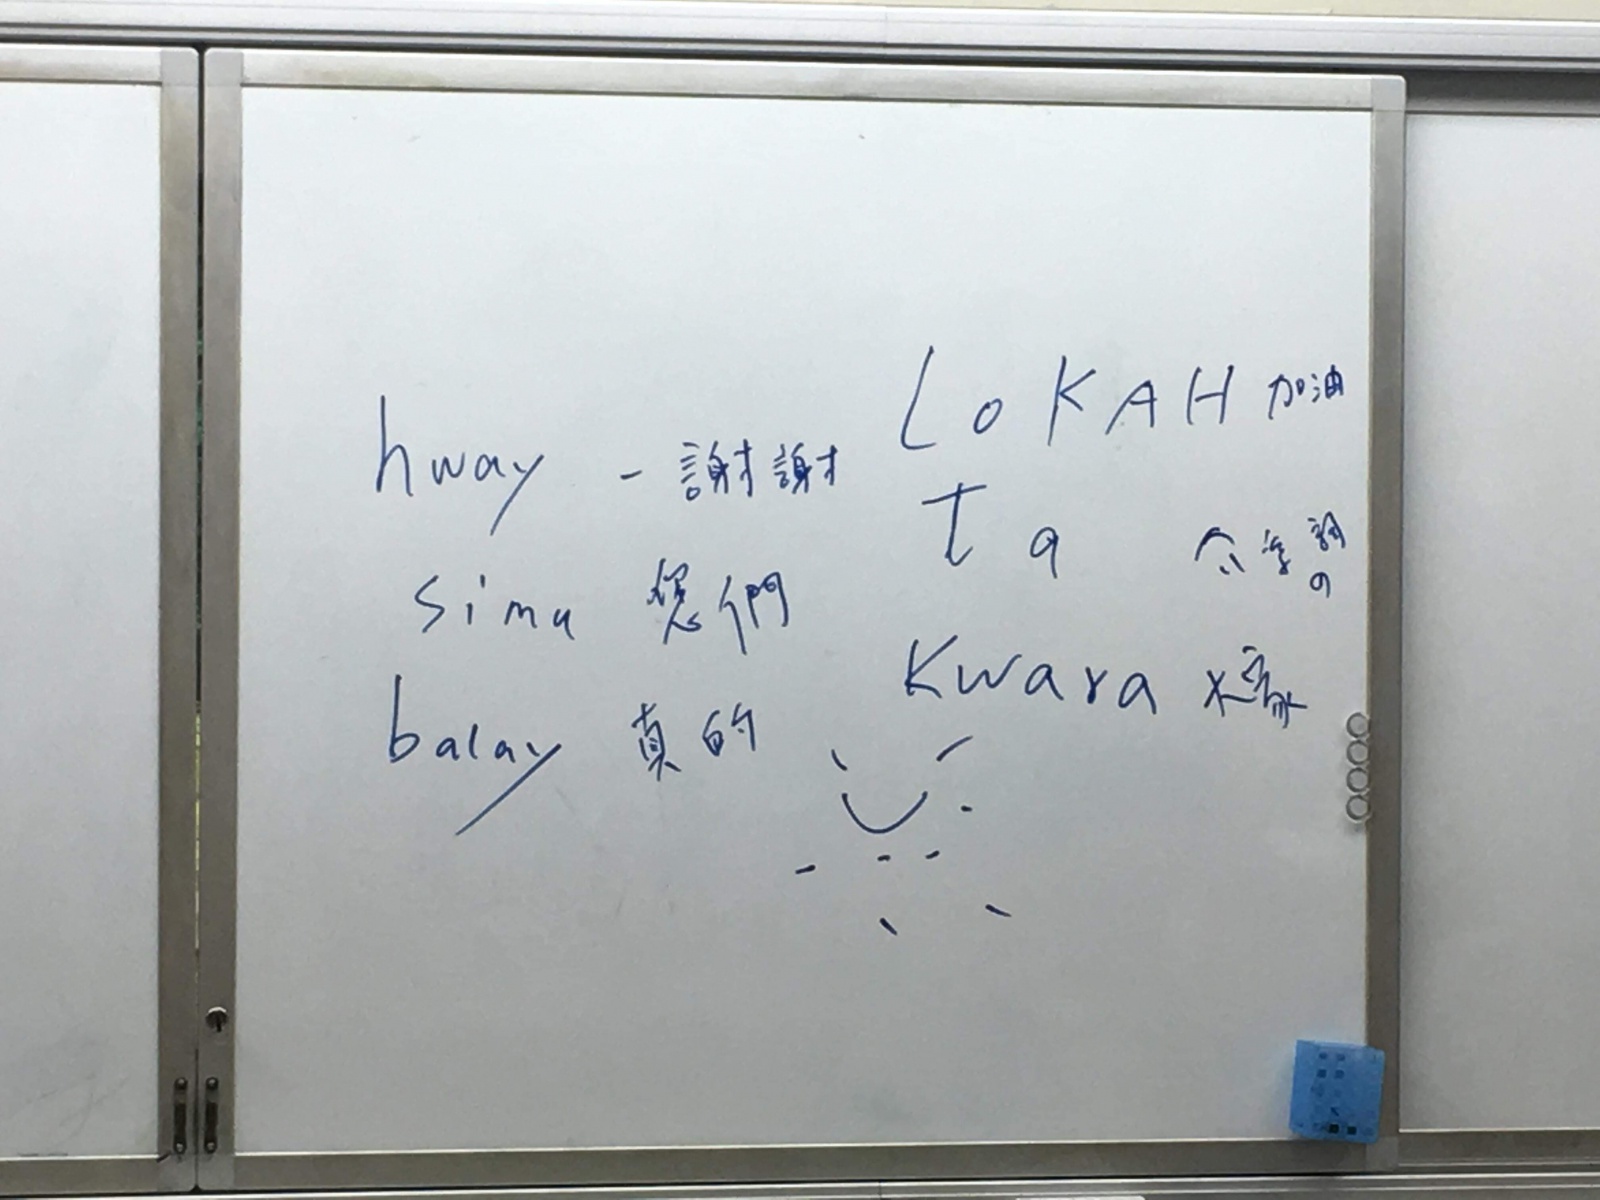 hway - 謝謝
simu 您們
balay 真的
LoKAH 加油
Ta 詞
の
Kwara 大家